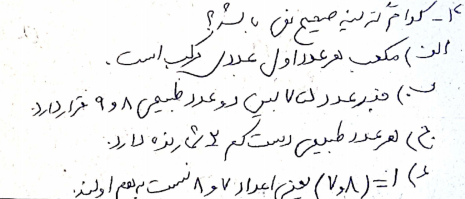 ۲- کدام گزینه صحیح نمی باشد؟
الف) مکعب هر عدد اول عددی مرکب است.
ب) جذر عدد ۷۵ بین دو عدد طبیعی ۸ و ۹ قرار دارد.
ج) هر عدد طبیعی دست کم ۲ شمارنده دارد.
د) ۱=(۷و۸) یعنی اعداد ۷ و ۸ نسبت به هم اولند.